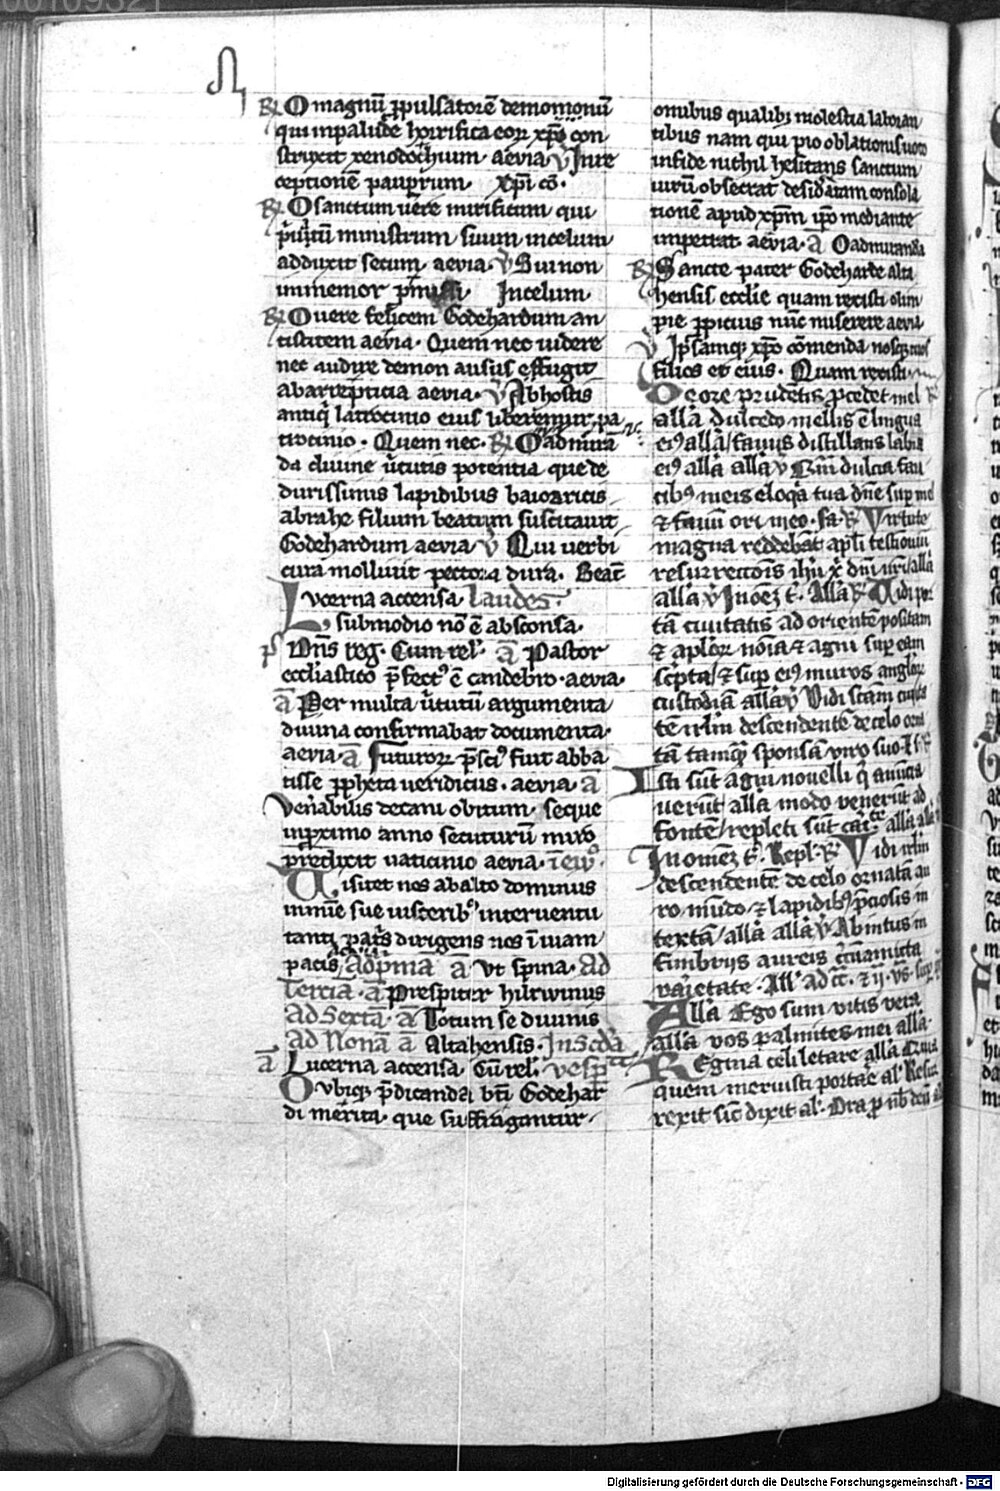 O magnū ꝓpulsatorē demomonū
qui in palude horrifica eoꝝ xp̄o con
struxit xenodochium. aevia. V̄ In re
ceptionē pauperum. xp̄i cō.
O sanctum uere mirificum qui
ministrum suum in celum
adduxit secum. aevia. V̄ Sui non
inmemor In celum.
O uere felicem Godehardum an
tistitem aevia. Quem nec uidere
nec audire demon ausus effugit
abarrepticia aevia. V̄ Ab hostis
antiqi latrocinio eius liberemur pa
trocinio. Quem nec. O admira
da diuine ūtutis potentia que de
durissimis lapidibus baioaricis
abrahe filium beatum suscitauit
Godehardum aevia V̄ Qui uerbi
cura molliuit pectora dura. Beat̄
Lvcerna accensa Laudes.
submodio nō ē absconsa.
Dn̄s reg. Cum rel'. a̅ Pastor
eccl̄iastico p̄fectꝰ ē candebro. aevia.
a̅ Per multa ūtutū argumenta
diuina confirmabat documenta.
aevia. a̅ Futuroꝝ p̄sciꝰ fiut abba
tisse ꝓpheta ueridicus. aevia. a̅
Venabilis decani obitum seque
in ꝓximo anno secuturū miro
predixit uaticinio aevia.
Visitet nos ab alto dominus
interuentu
tanti pat̄s dirigens nos ī uiam
pacis, Ad p̄mā a̅ Vt spina. Ad
Terciā. a̅ Prespiter hilrwinus
Ad Sextā. a̅ Totum se diuinis
Ad Nonā a̅ Altahensis. In Scd̄a
a̅ Lucerna accensa. Cū rel'. vesp̄a
O vbiqꝫ p̄dicanda bt̄i Godehar
di merita. que suffragantur.
omibus qualibꝫ molestia laboran
tibus nam qui pro oblationis uoto
in fide nichil hesitans sanctum
uirū obsecrat desid̄atam consola
tionē apud xp̄m ip̄o mediante
impetrat aevia. a̅ O admiranda
Sancte pater Godeharde alta
hensis eccl̄ie quam rexisti olim
pie ꝓpicius nūc miserere aevia
V̄ Ipsamqꝫ xp̄o cōmenda nosqꝫ tuos
filios et eius. Quam rexisti
De ore prudentis p̄cedet mel
allā dulcedo mellis ē lingua
eiꝰ allā / fauus distillans labia
eiꝰ allā allā V̄ Qm̄ dulcia fau
cibꝰ meis eloqa tua dn̄e sup mel
⁊ fauū ori meo. Virtute
magna reddebāt apl̄i testioniū
resurrectōis ih̄u xp̄ dn̄i nr̄i / allā
allā V̄ Allā Vidi por
tā ciuitatis ad orientē positam
⁊ aploꝝ nōia ⁊ agni sup eam
sc̄pta / ⁊ sup eiꝰ muros angloꝝ
custodiā allā V̄ Vidi sc̄am ciuita
tē irl̄m descendentē de celo orna
tā tamqꝫ sponsā viro suo.
Isti sūt agni nouelli q̄ anūcia
uerūt allā modo venerūt ad
fontē / repleti sūt allā allā
Repl. Vidi irl̄m
descendentē de celo ornatā au
ro mūdo ⁊ lapidibꝰ p̄ciosis in
textā / allā allā V̄ Ab intus in
fimbriis aureis
varietate.
Allā Ego sum vitis vera
allā vos palmites mei allā.
Regina celi letare allā Quia
quem meruisti portare al' Resur
rexit sic̄ dixit al'. Ora ꝓ nb̄ deū al
Digitalisierung gefördert durch die Deutsche Forschungsgemeinschaft - DFG